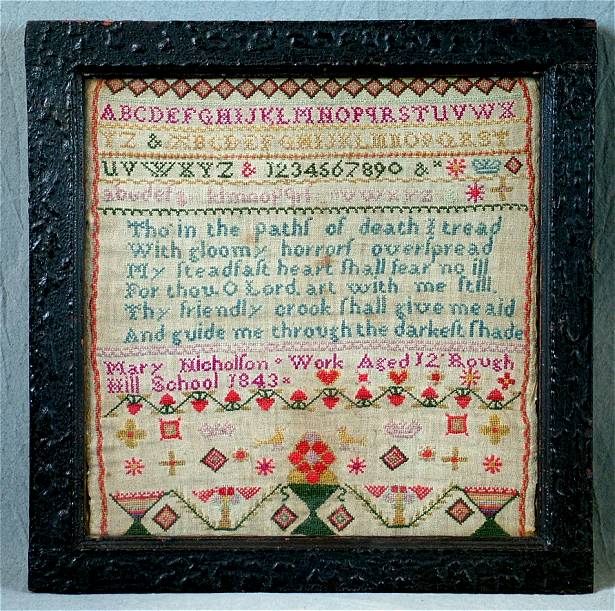 ABCDEFGHIJKLMNOPqRSTUVWX
YZ & ABCDEFGHIJKLMNOPQRST
UVWXYZ & 1234567890 &
klmnopqrſ UVWXYZ
Tho' in the pathſ of death I tread
With gloomy horrorſ overſpread
My ſteadfaſt heart ſhall fear no ill
For thou O Lord art with me ſtill
Thy friendly crook ſhall give me aid
And guide me through the darkeſt ſhade
Mary Nicholſon Work Aged 12 Rough
Hill School 1843